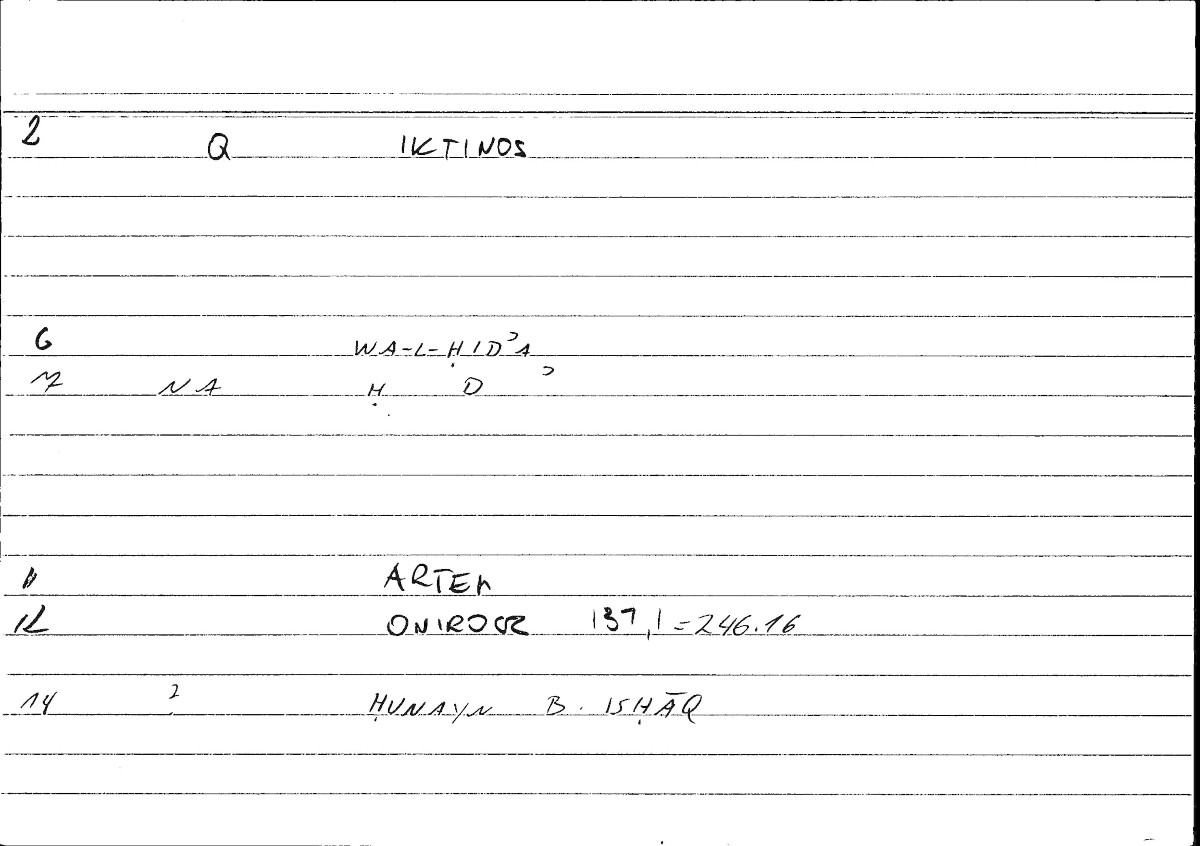 2 Q IKTINOS
6 WA-L-ḤIDʾA
7 NA Ḥ D ʾ
11 ARTEM
12 ONIROCR 137,1 = 246.16
14 ? ḤUNAYN B. ISḤĀQ